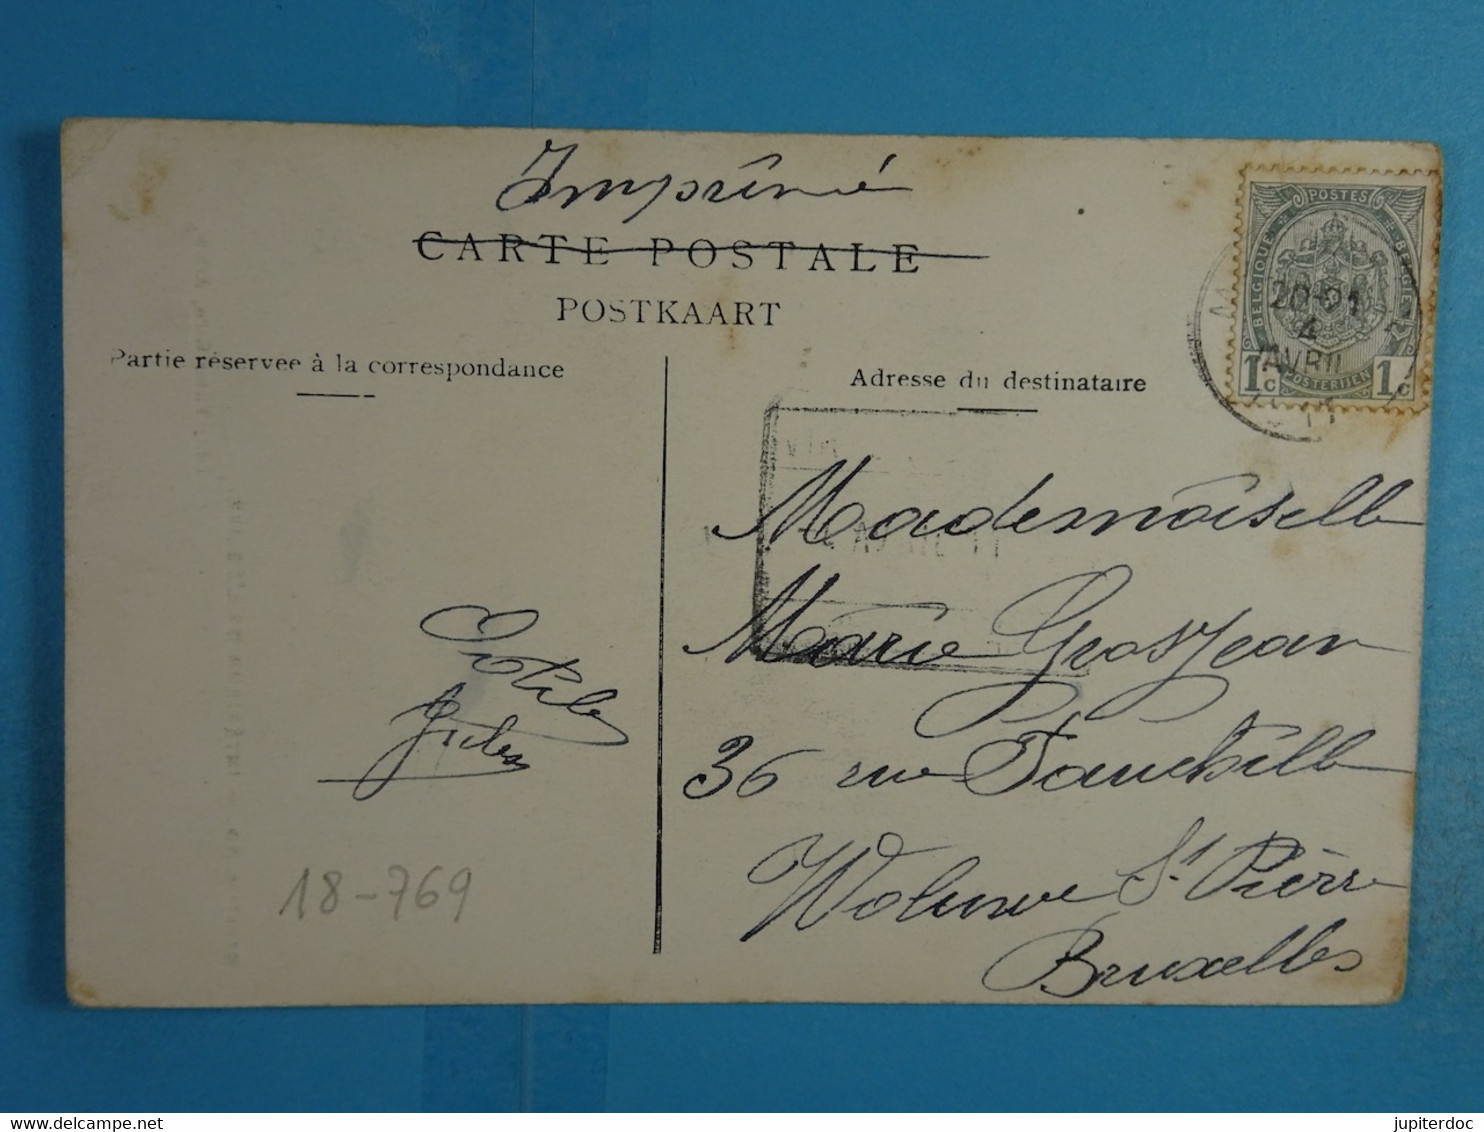 Imprimé
CARTE POSTALE
POSTKAART
Partie réservée à la correspondance
Adresse du destinataire
POSTES
BELGIQUE
BELGIE
POSTERIJEN
1c
1c
20-21
4
AVRIL
11
AVRIL 11
Mademoiselle
Marie Grosjean
36 rue
Woluwe St Pierre
Bruxelles
Jules
18-769
delcampe.net
jupiterdoc